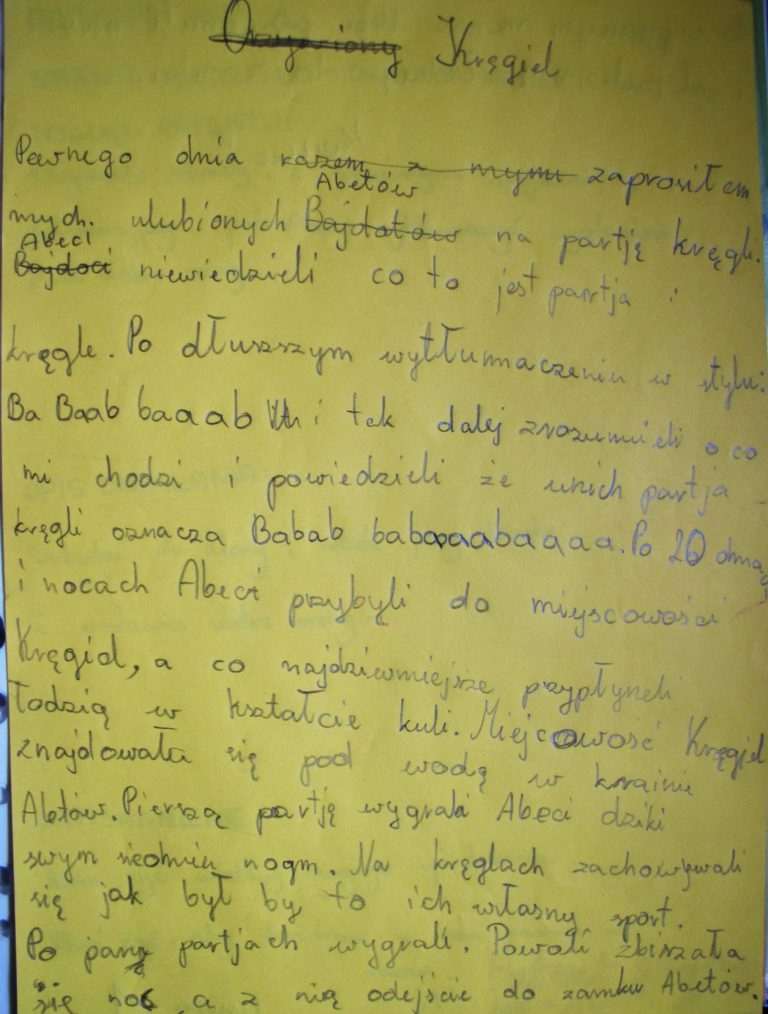 Kręgiel
Pewnego dnia razem z mymi zaprosiłem
Abetów
mych ulubionych Bajdotów na partję kręgli.
Abeci
Bajdoci niewiedzieli co to jest partja i
kręgle. Po dłuszszym wytłumaczeniu w stylu:
Ba Baab baaab i tak dalej zrozumieli o co
mi chodzi i powiedzieli że unich partja
kręgli oznacza Babab babaaabaaaa. Po 20 dniach
i nocach Abeci przybyli do miejscowości
Kręgiel, a co najdziwniejsze przypłyneli
łodzią w kształcie kuli. Miejcowość Kręgiel
znajdowała się pod wodą w krainie
Abetów. Pierszą partję wygrali Abeci dziki
swym siedmiu nogm. Na kręglach zachowywali
się jak był by to ich własny sport.
Po parę partjach wygrali. Powoli zbirzała
się noc, a z nią odejście do zamku Abetów.